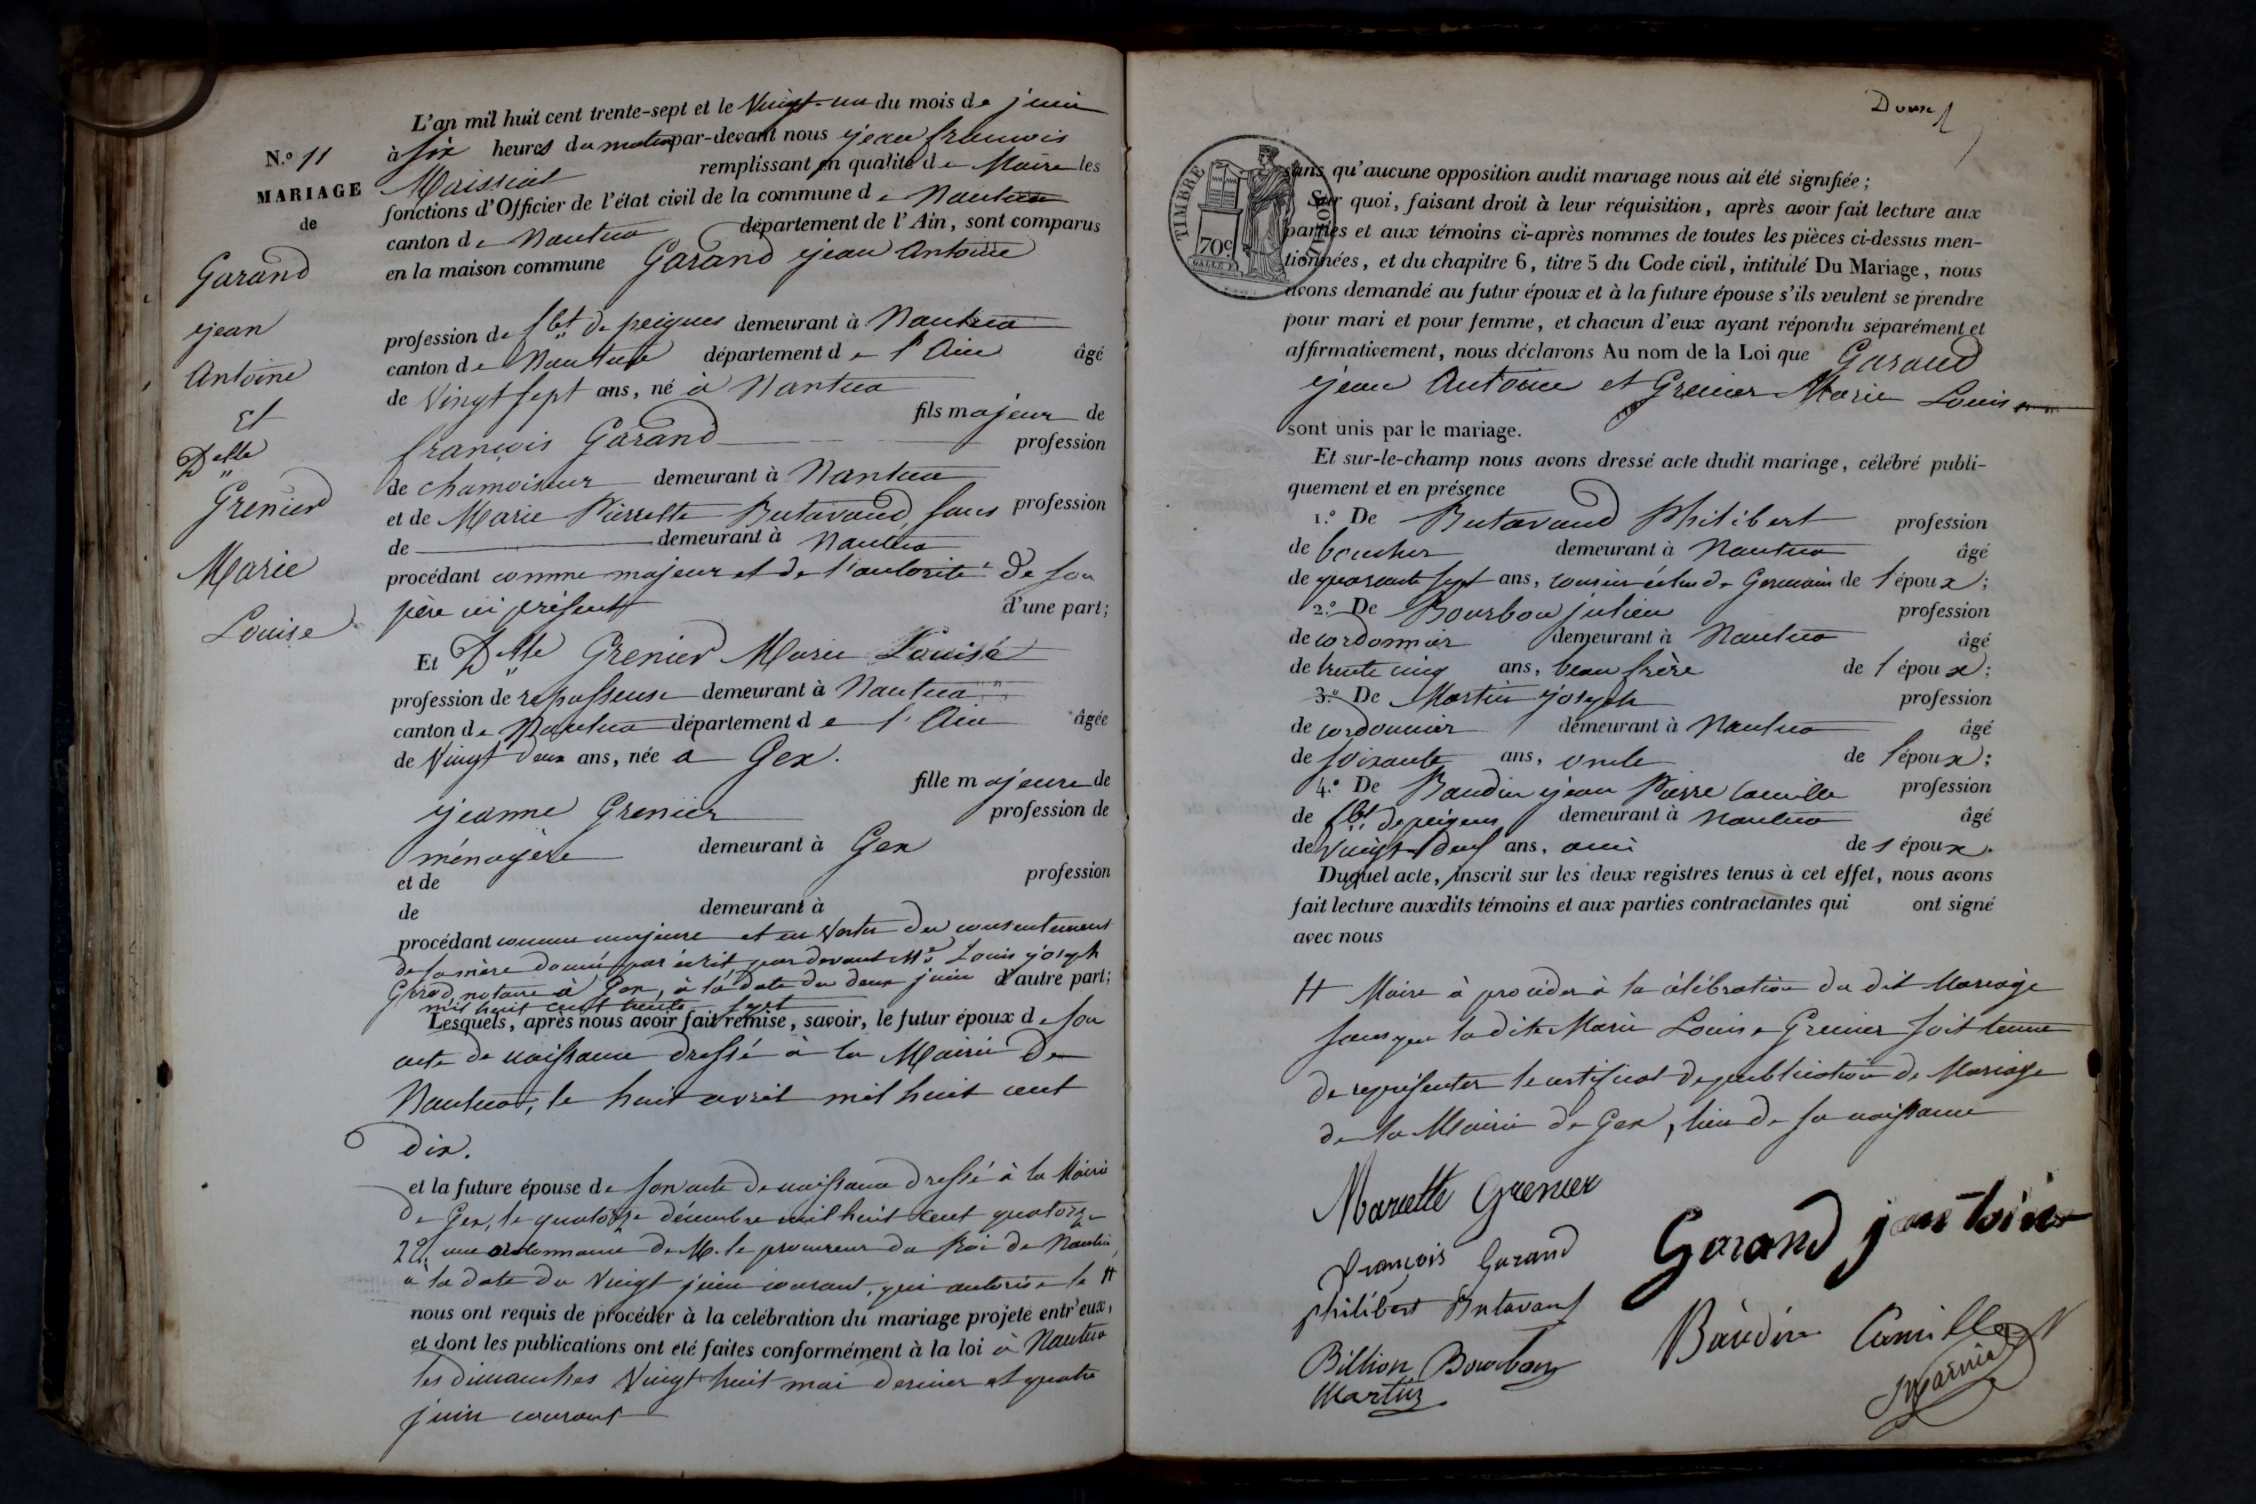 L'an mil huit cent trente-sept et le Vingt-un du mois de juin
à six heures du matin par-devant nous jean francois
Maissiat remplissant en qualité de Maire les
fonctions d'Officier de l'état civil de la commune de Nantua
canton de Nantua département de l'Ain, sont comparus
en la maison commune Garand jean Antoine
N.º 11
MARIAGE
de
Garand
jean
Antoine
Et
Delle
Grenier
Marie
Louise
profession de fbt de peignes demeurant à Nantua
canton de Nantua département de l'Ain âgé
de Vingt sept ans, né à Nantua
fils majeur de
françois Garand profession
de chamoiseur demeurant à Nantua
et de Marie Pierrette Butavand, sans profession
de demeurant à Nantua
procédant comme majeur et de l'autorité de son
père ici présent d'une part;
Et Delle Grenier Marie Louise
profession de repasseuse demeurant à Nantua
canton de Nantua département de l'Ain âgée
de Vingt deux ans, née à Gex.
fille majeure de
jeanne Grenier profession de
ménagère demeurant à Gex
et de profession
de demeurant à
procédant comme majeure et en vertu du consentement
de sa mère donné par écrit par devant Me Louis joseph
notaire à Gex, à la date du deux juin d'autre part;
mil huit cent trente sept
Lesquels, après nous avoir fait remise, savoir, le futur époux de son
acte de naissance dressé à la Mairie de
Nantua, le huit avril mil huit cent
dix.
et la future épouse de son acte de naissance dressé à la Mairie
de Gex, le quatorze décembre mil huit cent quatorze
2º une ordonnance de M. le procureur du Roi de Nantua,
à la date du Vingt juin courant, qui autorise le #
nous ont requis de procéder à la celébration du mariage projeté entr'eux,
et dont les publications ont été faites conformément à la loi à Nantua
les dimanches Vingt huit mai dernier et quatre
juin courant
TIMBRE ROYAL
70c
sans qu'aucune opposition audit mariage nous ait été signifiée;
Sur quoi, faisant droit à leur réquisition, après avoir fait lecture aux
parties et aux témoins ci-après nommes de toutes les pièces ci-dessus men-
tionnées, et du chapitre 6, titre 5 du Code civil, intitulé Du Mariage, nous
avons demandé au futur époux et à la future épouse s'ils veulent se prendre
pour mari et pour femme, et chacun d'eux ayant répondu séparément et
affirmativement, nous déclarons Au nom de la Loi que Garand
jean Antoine et Grenier Marie Louise
sont unis par le mariage.
Et sur-le-champ nous avons dressé acte dudit mariage, célébré publi-
quement et en présence
1.º De Butavand Philibert profession
de boucher demeurant à Nantua âgé
de quarante sept ans, cousin Germain de l'époux;
2.º De Bourbon julien profession
de cordonnier demeurant à Nantua âgé
de trente cinq ans, beau frère de l'époux;
3.º De Martin joseph profession
de cordonnier demeurant à Nantua âgé
de soixante ans, oncle de l'époux;
4.º De Baudin jean Pierre Camille profession
de fbt de peignes demeurant à Nantua âgé
de Vingt neuf ans, ami de l'époux.
Duquel acte, inscrit sur les deux registres tenus à cet effet, nous avons
fait lecture auxdits témoins et aux parties contractantes qui ont signé
avec nous
# Maire à procéder à la célébration du dit Mariage
sans que la dite Marie Louise Grenier soit tenue
de représenter le certificat de publication de Mariage
de la Mairie de Gex, lieu de sa naissance
Mariette Grenier
françois Garand
Garand jantoine
philibert Butavand
Baudin Camille
Billion Bourbon
Martin